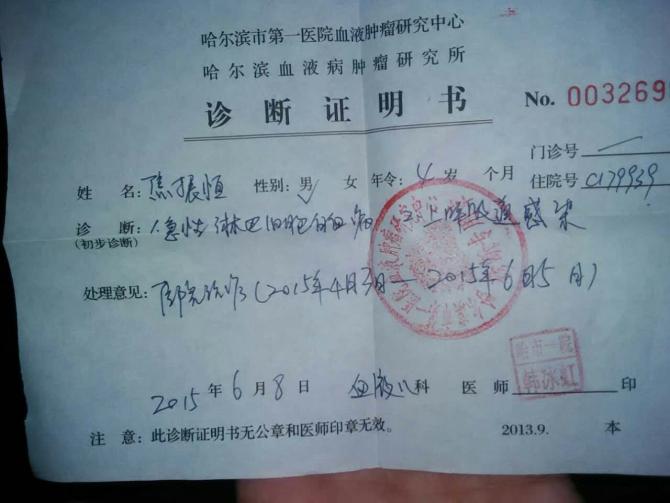 哈尔滨市第一医院血液肿瘤研究中心
哈尔滨血液病肿瘤研究所
诊断证明书
No. 003269
门诊号
姓名:焦振恒 性别:男 女 年令:4 岁 个月 住院号 C179939
诊断:急性淋巴细胞白血病 上呼吸道感染
(初步诊断)
处理意见:(2015年4月3日—2015年6月5日)
2015年6月8日 血液儿科 医师 印
哈市一院
韩冰虹
注意:此诊断证明书无公章和医师印章无效。 2013.9. 本